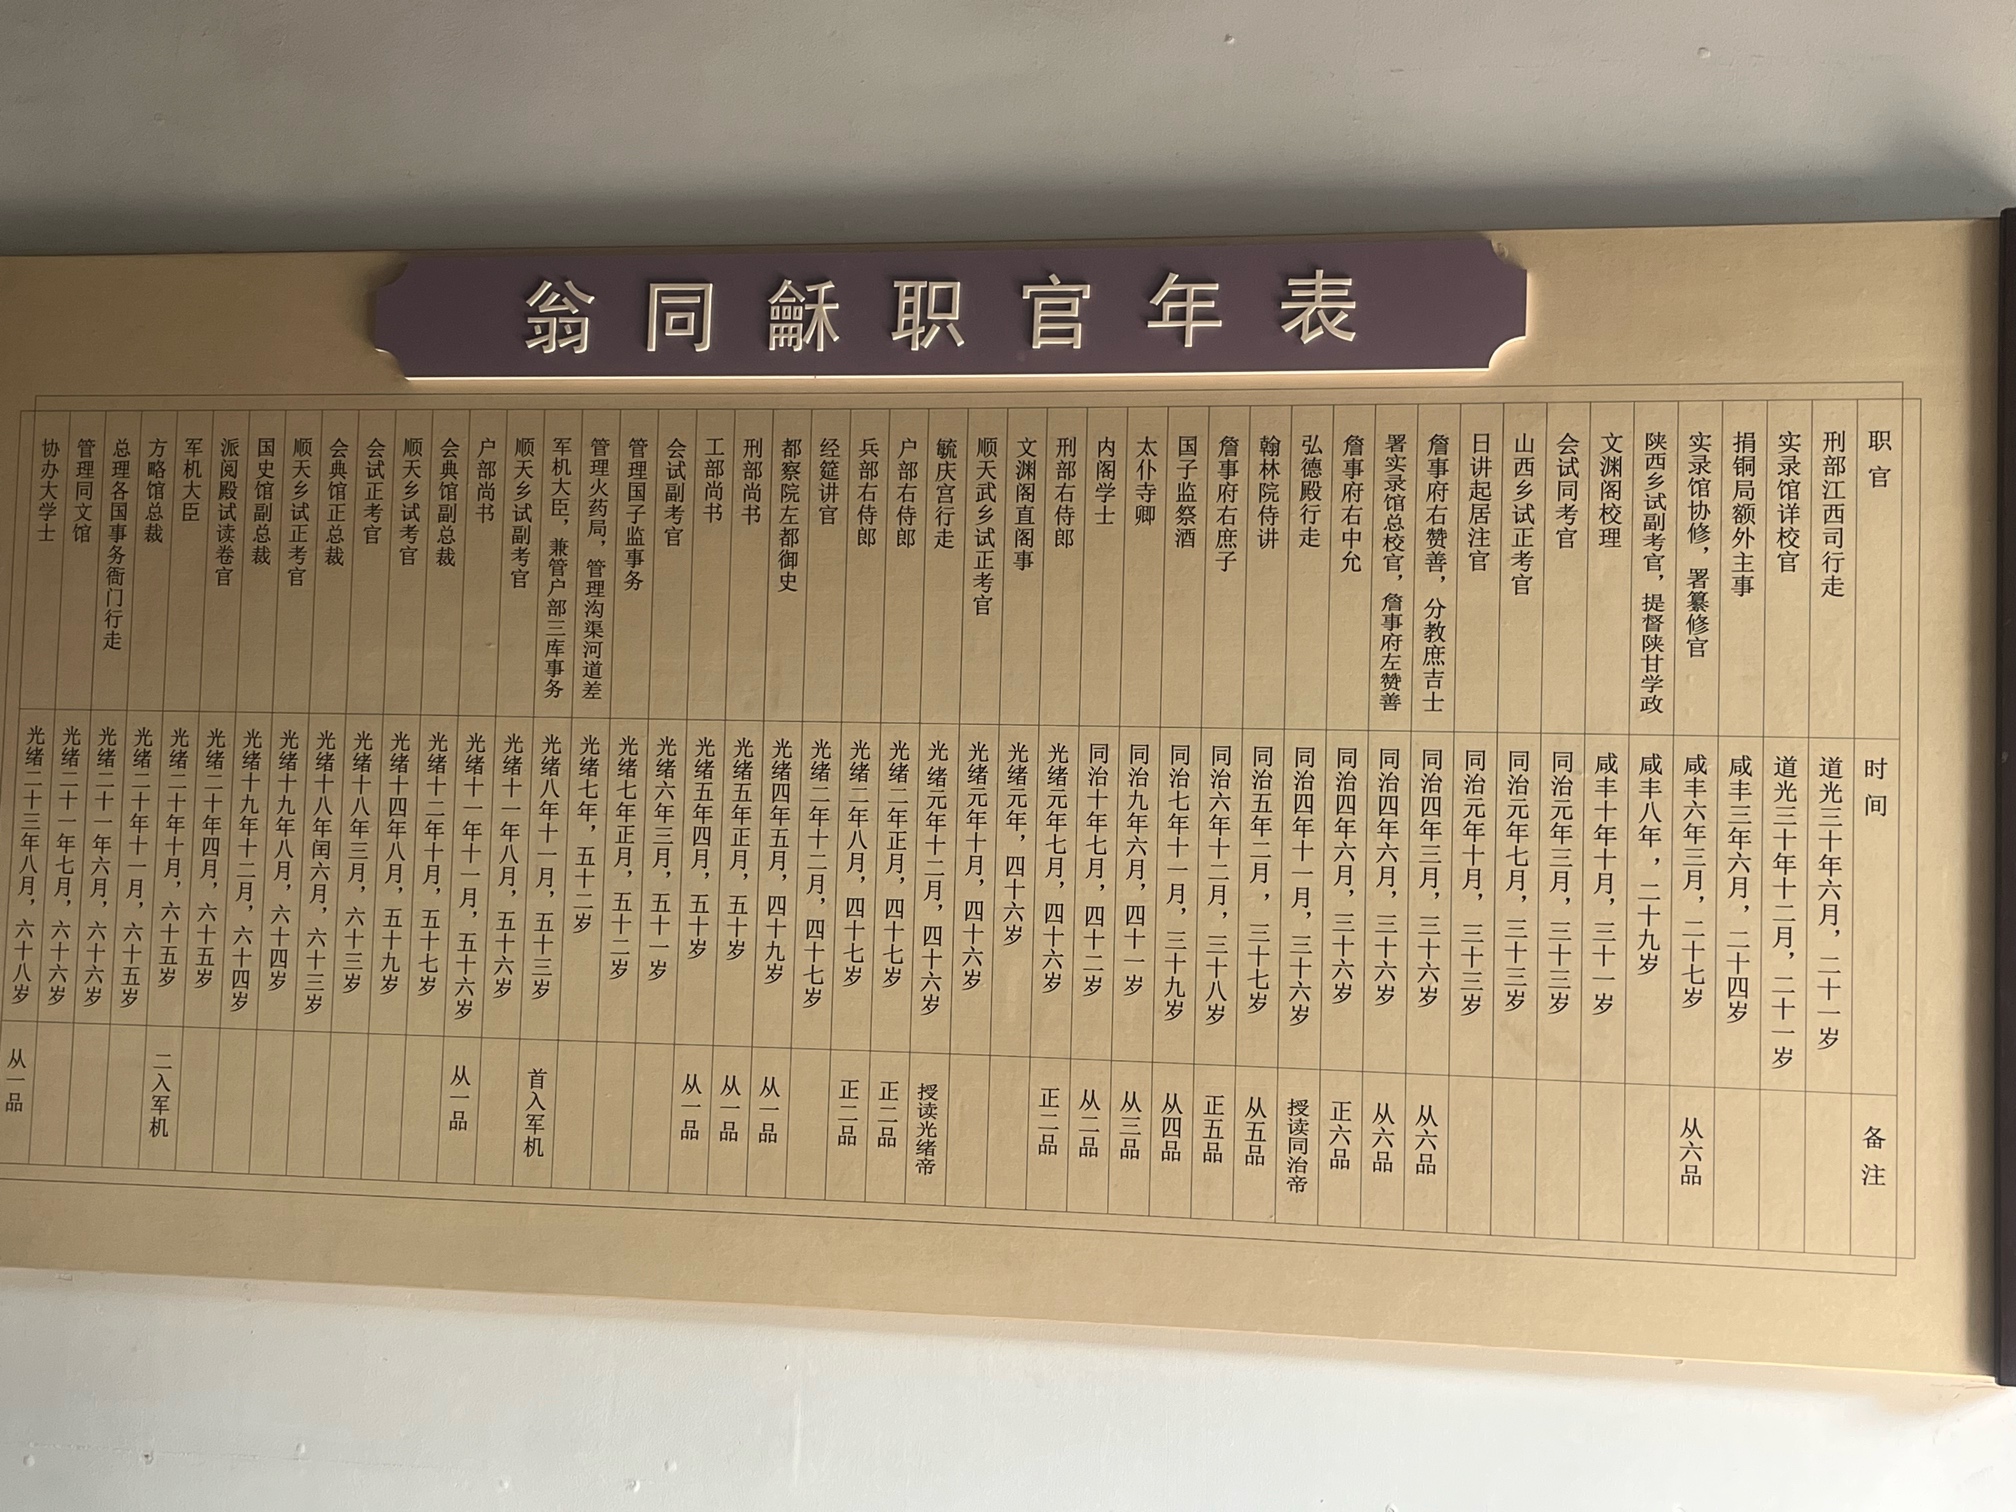 翁同龢职官年表
职官 时间 备注
刑部江西司行走 道光三十年六月，二十一岁
实录馆详校官 道光三十年十二月，二十一岁
捐铜局额外主事 咸丰三年六月，二十四岁
实录馆协修，署纂修官 咸丰六年三月，二十七岁 从六品
陕西乡试副考官，提督陕甘学政 咸丰八年，二十九岁
文渊阁校理 咸丰十年十月，三十一岁
会试同考官 同治元年三月，三十三岁
山西乡试正考官 同治元年七月，三十三岁
日讲起居注官 同治元年十月，三十三岁
詹事府右赞善，分教庶吉士 同治四年三月，三十六岁 从六品
署实录馆总校官，詹事府左赞善 同治四年六月，三十六岁 从六品
詹事府右中允 同治四年六月，三十六岁 正六品
弘德殿行走 同治四年十一月，三十六岁 授读同治帝
翰林院侍讲 同治五年二月，三十七岁 从五品
詹事府右庶子 同治六年十二月，三十八岁 正五品
国子监祭酒 同治七年十一月，三十九岁 从四品
太仆寺卿 同治九年六月，四十一岁 从三品
内阁学士 同治十年七月，四十二岁 从二品
刑部右侍郎 光绪元年七月，四十六岁 正二品
文渊阁直阁事 光绪元年，四十六岁
顺天武乡试正考官 光绪元年十月，四十六岁
毓庆宫行走 光绪元年十二月，四十六岁 授读光绪帝
户部右侍郎 光绪二年正月，四十七岁 正二品
兵部右侍郎 光绪二年八月，四十七岁 正二品
经筵讲官 光绪二年十二月，四十七岁
都察院左都御史 光绪四年五月，四十九岁 从一品
刑部尚书 光绪五年正月，五十岁 从一品
工部尚书 光绪五年四月，五十岁 从一品
会试副考官 光绪六年三月，五十一岁
管理国子监事务 光绪七年正月，五十二岁
管理火药局，管理沟渠河道差 光绪七年，五十二岁
军机大臣，兼管户部三库事务 光绪八年十一月，五十三岁 首入军机
顺天乡试副考官 光绪十一年八月，五十六岁
户部尚书 光绪十一年十一月，五十六岁 从一品
会典馆副总裁 光绪十二年十月，五十七岁
顺天乡试考官 光绪十四年八月，五十九岁
会试正考官 光绪十八年三月，六十三岁
会典馆正总裁 光绪十八年闰六月，六十三岁
顺天乡试正考官 光绪十九年八月，六十四岁
国史馆副总裁 光绪十九年十二月，六十四岁
派阅殿试读卷官 光绪二十年四月，六十五岁
军机大臣 光绪二十年十月，六十五岁 二入军机
方略馆总裁 光绪二十年十一月，六十五岁
总理各国事务衙门行走 光绪二十一年六月，六十六岁
管理同文馆 光绪二十一年七月，六十六岁
协办大学士 光绪二十三年八月，六十八岁 从一品